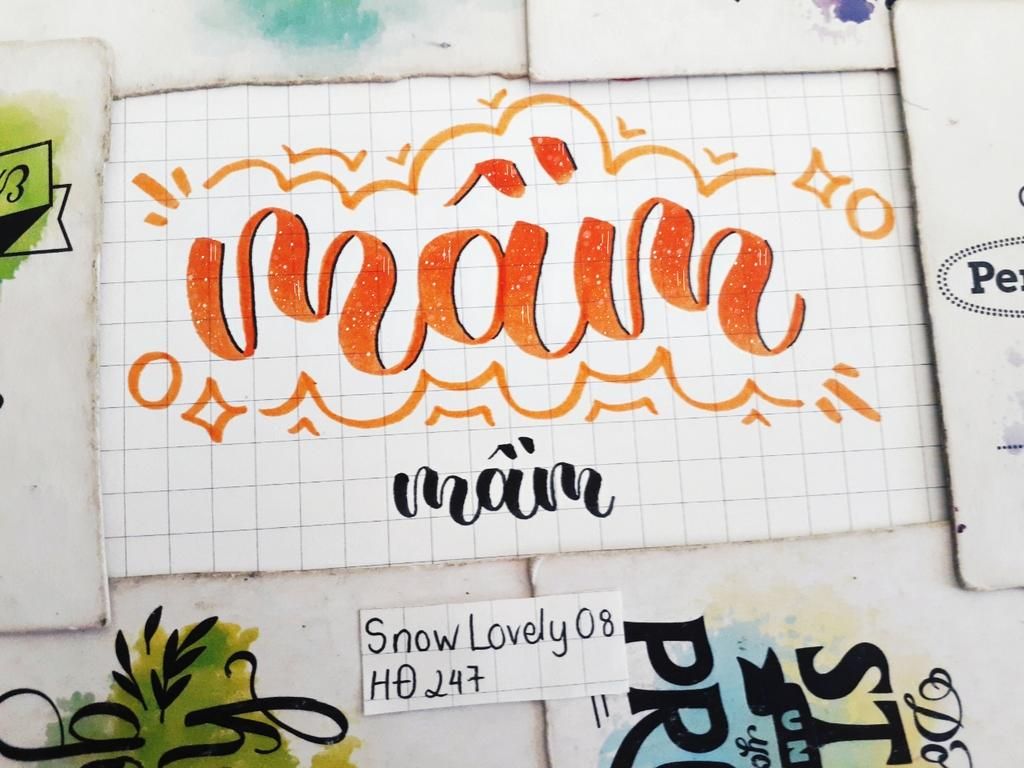 mầm
mầm
Snow Lovely 08
HĐ 247
Per
PR
ST
UN
yo
Do